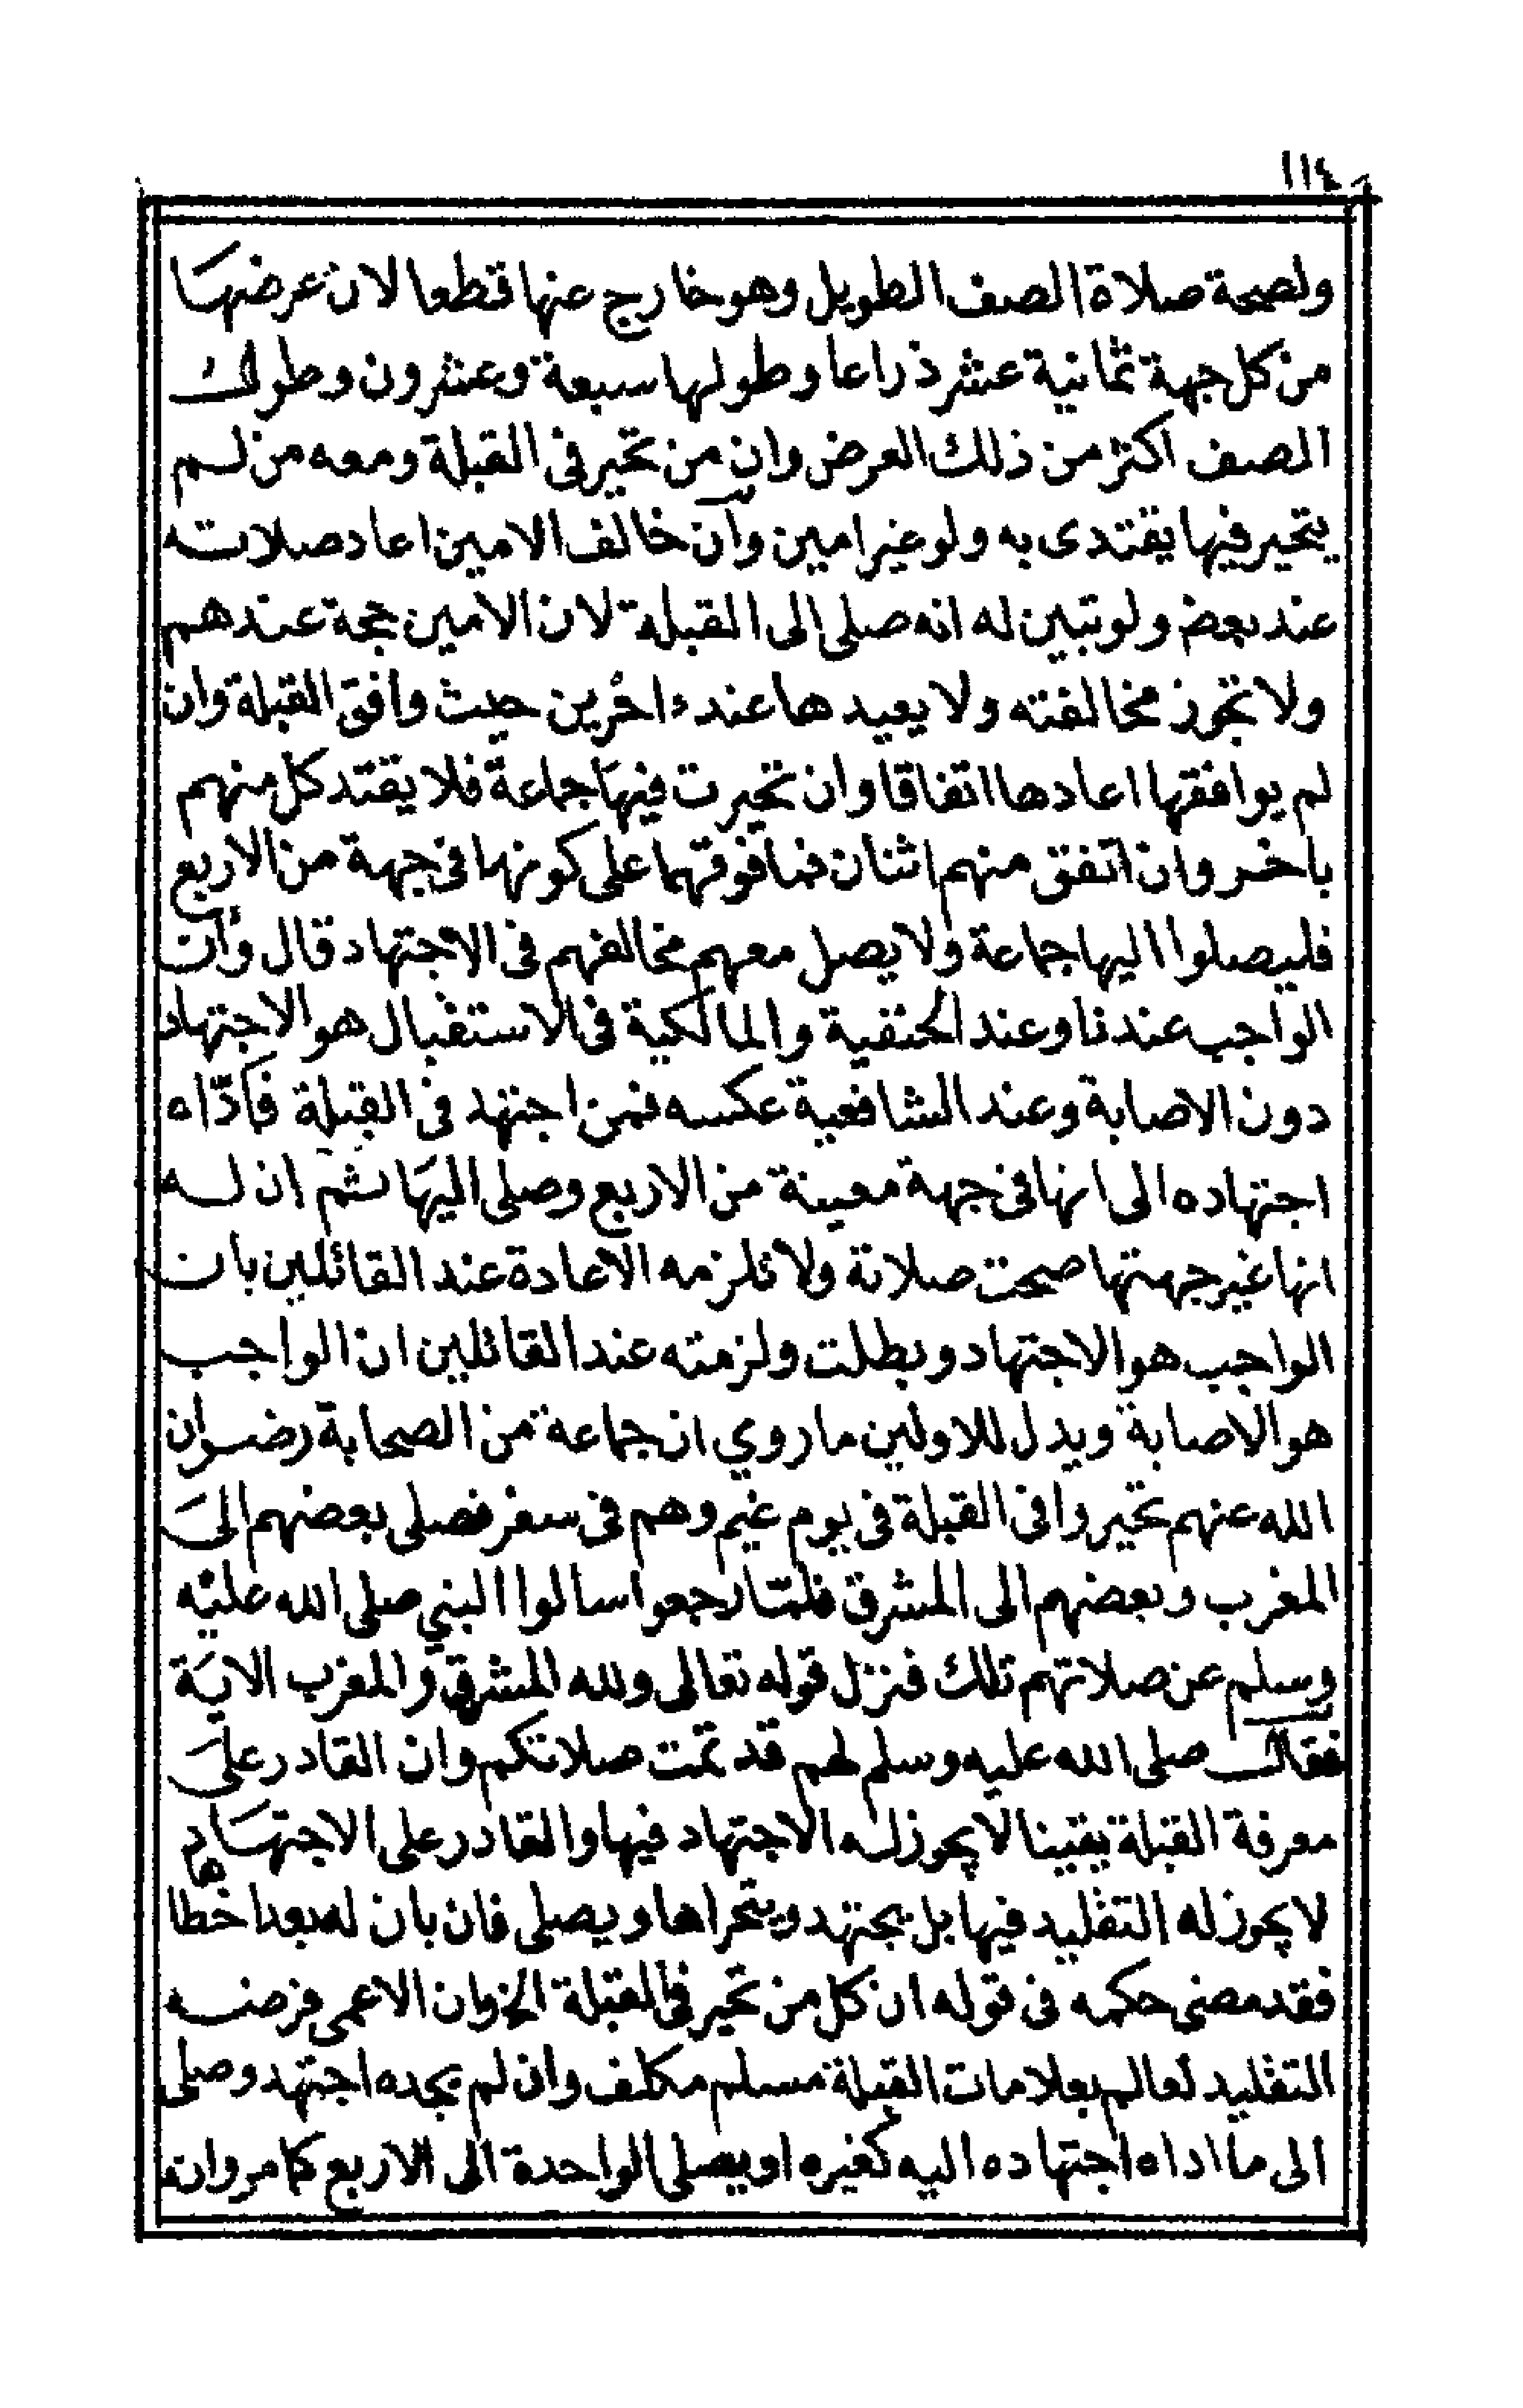 ١١٤
ولصحة صلاة الصف الطويل وهو خارج عنها قطعا لان عرضها
من كل جهة ثمانية عشر ذراعا وطولها سبعة وعشرون وطول
الصف اكثر من ذلك العرض وان من تحير فى القبلة ومعه من لم
يتحير فيها يقتدى به ولو غير امين وان خالف الامين اعاد صلاته
عند بعض ولو تبين له انه صلى الى القبلة لان الامين حجة عندهم
ولا تجوز مخالفته ولا يعيدها عند ءاخرين حيث وافق القبلة وان
لم يوافقها اعادها اتفاقا وان تحيرت فيها جماعة فلا يقتد كل منهم
باخر وان اتفق منهم اثنان فما فوقهما على كونها فى جهة من الاربع
فليصلوا اليها جماعة ولا يصل معهم مخالفهم فى الاجتهاد قال وان
الواجب عندنا وعند الحنفية والمالكية فى الاستقبال هو الاجتهاد
دون الاصابة وعند الشافعية عكسه فمن اجتهد فى القبلة فادّاه
اجتهاده الى انها فى جهة معينة من الاربع وصلى اليها ثم ان له
انها غير جهتها صحت صلاتة ولا تلزمه الاعادة عند القائلين بان
الواجب هو الاجتهاد وبطلت ولزمته عند القائلين ان الواجب
هو الاصابة ويدل للاولين ما روي ان جماعة من الصحابة رضوان
الله عنهم تحيروا فى القبلة فى يوم غيم وهم فى سفر فصلى بعضهم الى
المغرب وبعضهم الى المشرق فلمّا رجعوا سالوا النبي صلى الله عليه
وسلم عن صلاتهم تلك فنزل قوله تعالى ولله المشرق والمغرب الاية
فقال صلى الله عليه وسلم لهم قد تمت صلاتكم وان القادر على
معرفة القبلة يقينا لا يجوز له الاجتهاد فيها والقادر على الاجتهاد
لا يجوز له التقليد فيها بل يجتهد ويتحراها ويصلى فان بان له بعد خطاها
فقد مضى حكمه فى قوله ان كل من تحير فى القبلة الخ وان الاعمى فرضه
التقليد لعالم بعلامات القبلة مسلم مكلف وان لم يجده اجتهد وصلى
الى ما اداه اجتهاده اليه كغيره او يصلى الواحدة الى الاربع كما مر وانه